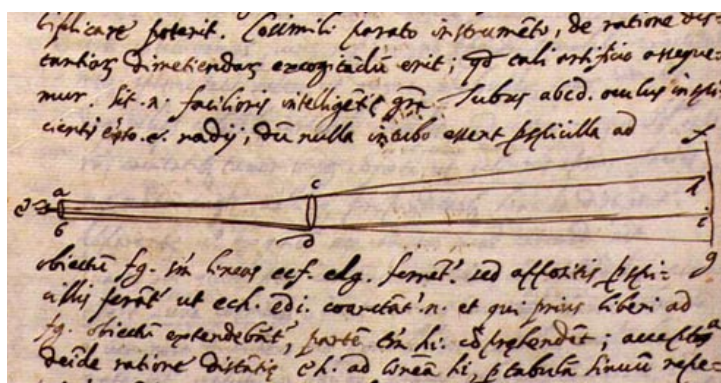 tiplicare poterit. Cõsimili parato instrumẽto, de ratione dis-
tantiaꝝ dimetiendaꝝ excogitãdũ erit; qd tali artificio asseque-
mur. Sit .n. facilioris intelligẽtię grã. Tubus abcd. oculus inspi-
cientis esto .e. radij, dũ nulla in tubo essent pspicilla ad
f
a c h
e
b d i
g
obiectũ fg. sm lineas ecf. edg. ferrent̃. sed appositis pspi-
cillis ferãt̃ ut ech. edi. coarctãt̃ .n. et qui prius liberi ad
fg. obiectũ extendebãt̃, partẽ tm hi. cõprehendẽt; accepta
deĩde ratione distãtię eh. ad lineã hi, p tabulã sinuũ repe-